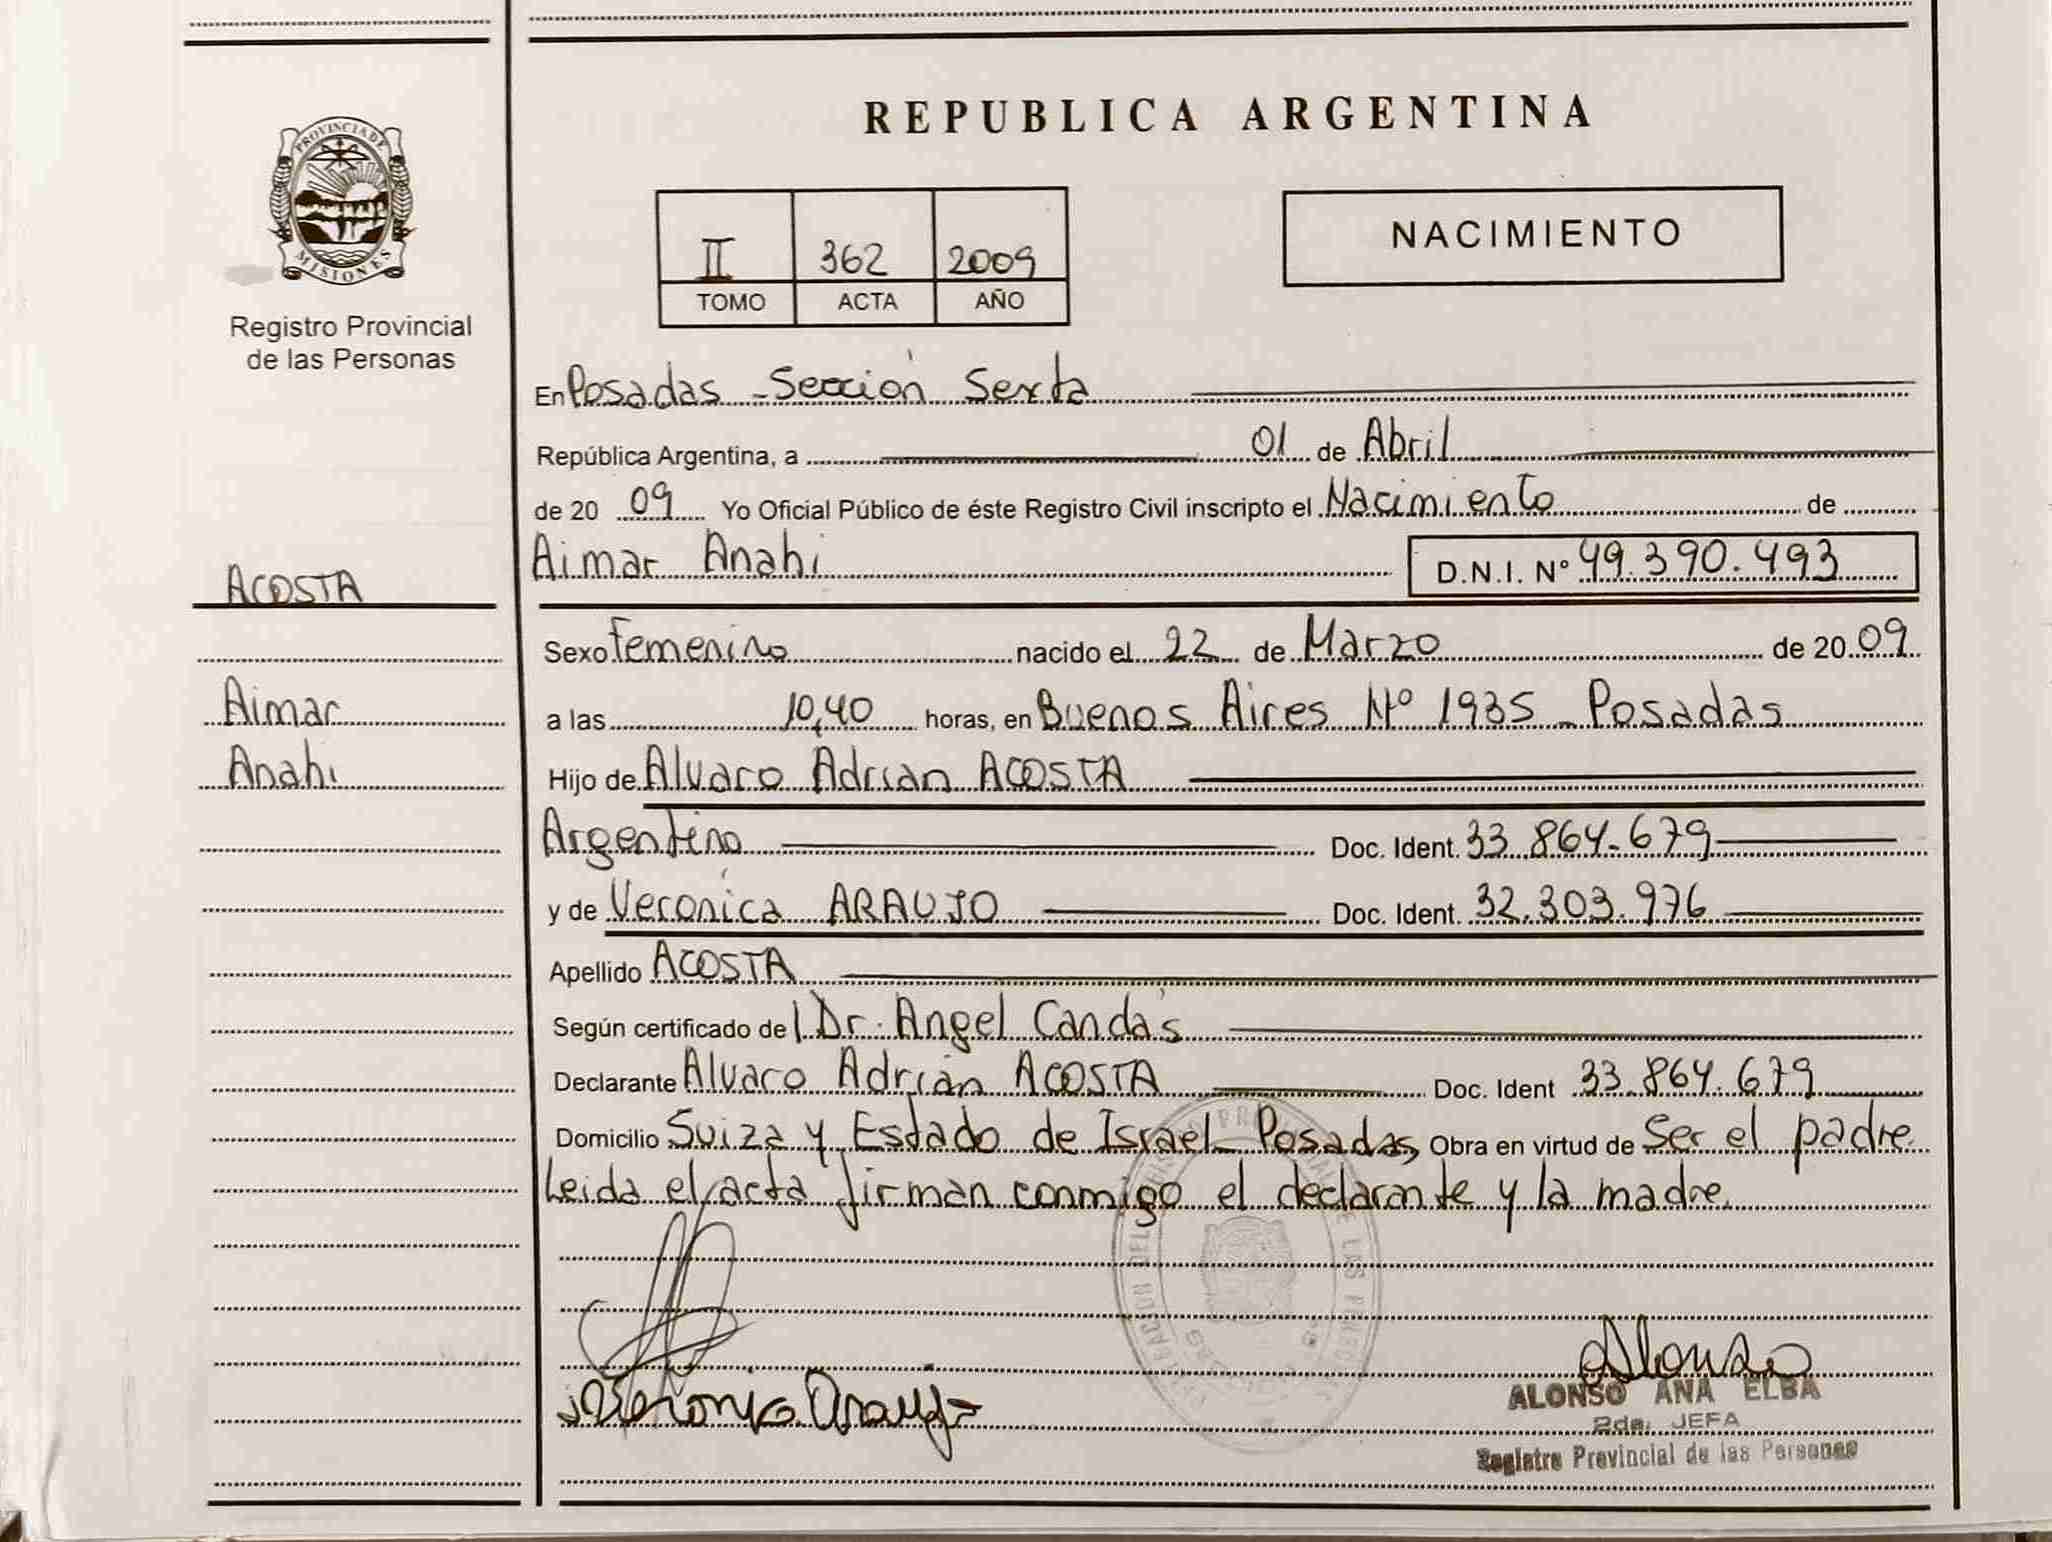 REPUBLICA ARGENTINA
PROVINCIA DE
MISIONES
Registro Provincial
de las Personas
II 362 2009
TOMO ACTA AÑO
NACIMIENTO
En Posadas - Sección Sexta
República Argentina, a 01 de Abril
de 20 09 Yo Oficial Público de éste Registro Civil inscripto el Nacimiento de
Aimar Anahi D.N.I. Nº 49.390.493
ACOSTA
Sexo Femenino nacido el 22 de Marzo de 20 09
Aimar
a las 10,40 horas, en Buenos Aires Nº 1935 - Posadas
Anahi
Hijo de Alvaro Adrian ACOSTA
Argentino Doc. Ident. 33.864.679
y de Veronica ARAUJO Doc. Ident. 32.303.976
Apellido ACOSTA
Según certificado de l Dr. Angel Candás
Declarante Alvaro Adrian ACOSTA Doc. Ident 33.864.679
Domicilio Suiza y Estado de Israel - Posadas Obra en virtud de Ser el padre.
Leida el acta firman conmigo el declarante y la madre.
Alonso
Veronica Araujo
ALONSO ANA ELBA
2da. JEFA
Registro Provincial de las Personas